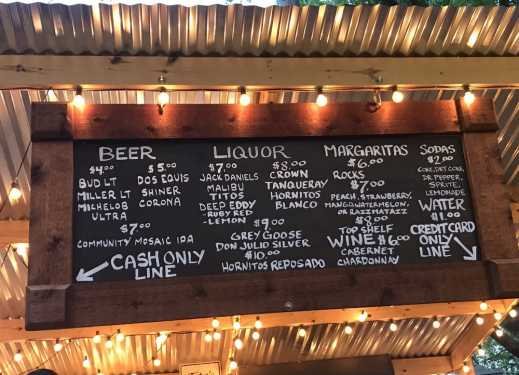 BEER
$4.00
BUD LT
MILLER LT
MICHELOB
ULTRA
$5.00
DOS EQUIS
SHINER
CORONA
$7.00
COMMUNITY MOSAIC IPA
CASH ONLY
LINE
LIQUOR
$7.00
JACK DANIELS
MALIBU
TITOS
DEEP EDDY
-RUBY RED
-LEMON
$8.00
CROWN
TANQUERAY
HORNITOS
BLANCO
$9.00
GREY GOOSE
DON JULIO SILVER
$10.00
HORNITOS REPOSADO
MARGARITAS
$6.00
ROCKS
$7.00
PEACH, STRAWBERRY,
MANGO, WATERMELON,
OR RAZZMATAZZ
$8.00
TOP SHELF
WINE $6.00
CABERNET
CHARDONNAY
SODAS
$2.00
COKE, DIET COKE,
DR PEPPER,
SPRITE,
LEMONADE
WATER
$1.00
CREDIT CARD
ONLY
LINE